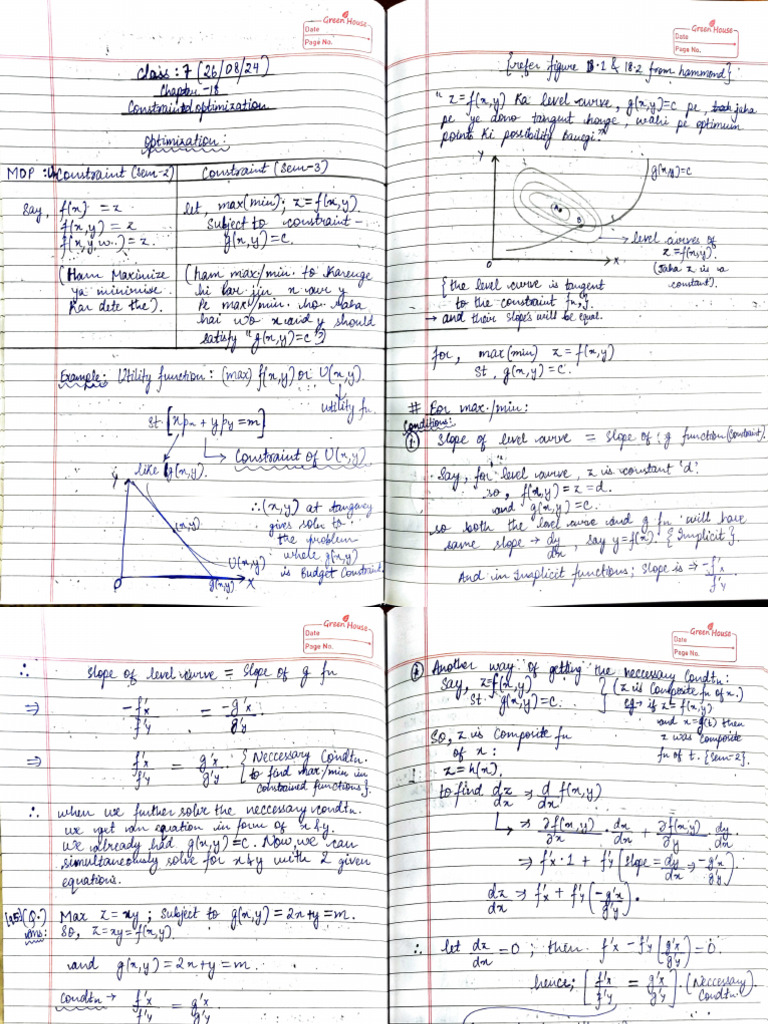 Green House
Date
Page No.
Class : 7 (26/08/24)
Chapter -18
Constrained optimization
Optimization :
MOP : Constraint (Sem-2)
Constraint (Sem-3)
Say, f(x) = z
f(x,y) = z
f(x,y,w..) = z.
let, max(min); z=f(x,y).
Subject to constraint –
g(x,y) = c.
(Ham Maximize
ya minimise
kar dete the).
(ham max/min. to karenge
hi bar jin x aur y
pe max/min. ho raha
hai wo x and y should
satisfy "g(x,y)=c")
Example: Utility function : (max) f(x,y) or U(x,y).
utility fn.
st [xpx + ypy = m]
Constraint of U(x,y)
like g(x,y).
y
(x,y)
U(x,y)
O
g(x,y)
X
∴ (x,y) at tangency
gives soln to
the problem
where g(x,y)
is Budget Constraint
Green House
Date
Page No.
[refer figure 18.1 & 18.2 from hammond]
"z=f(x,y) ka level curve, g(x,y)=c pe, jaha
pe ye dono tangent honge, wahi pe optimum
points ki possibility banegi."
y
g(x,y)=c
O
x
level curves of
z=f(x,y).
(Jaha z is a
constant).
{the level curve is tangent
to the constraint fn,
→ and their slope's will be equal.
for, max(min) z = f(x,y)
st, g(x,y) = c.
# For max./min:
Conditions:
(1.) Slope of level curve = slope of g function (Constraint).
Say, for level curve, z is constant 'd'.
so, f(x,y) = z = d.
and g(x,y) = c.
so both the level curve and g fn will have
same slope → dy/dx, say y=f(x). {Implicit}.
And in Implicit functions; slope is ⇒ -f'x/f'y
Green House
Date
Page No.
∴ slope of level curve = slope of g fn
⇒ -f'x/f'y = -g'x/g'y
⇒ f'x/f'y = g'x/g'y {Neccessary Condtn.
to find max/min in
constrained functions}.
∴ when we further solve the neccessary condtn.
we get an equation in form of x & y.
We already had g(x,y) = c. Now, we can
simultaneously solve for x & y with 2 given
equations.
(Q.) Max z = xy ; subject to g(x,y) = 2x+y = m.
ans: So, z = xy = f(x,y).
and g(x,y) = 2x+y = m.
Condtn → f'x/f'y = g'x/g'y
Green House
Date
Page No.
Another way of getting the neccessary Condtn:
Say, z=f(x,y)
st. g(x,y)=c.
(z is composite fn of x.)
eg → if z = f(x,y)
and x = g(t) then
z was composite
fn of t. [sem-2].
So, z is Composite fn
of x :
z = h(x).
to find dz/dx ⇒ d/dx f(x,y)
⇒ ∂f(x,y)/∂x · dx/dx + ∂f(x,y)/∂y · dy/dx.
⇒ f'x · 1 + f'y (slope = dy/dx ⇒ -g'x/g'y)
dz/dx ⇒ f'x + f'y (-g'x/g'y).
∴ let dz/dx = 0 ; then f'x - f'y (g'x/g'y) = 0.
hence; [f'x/f'y = g'x/g'y]. (Neccessary
Condtn.